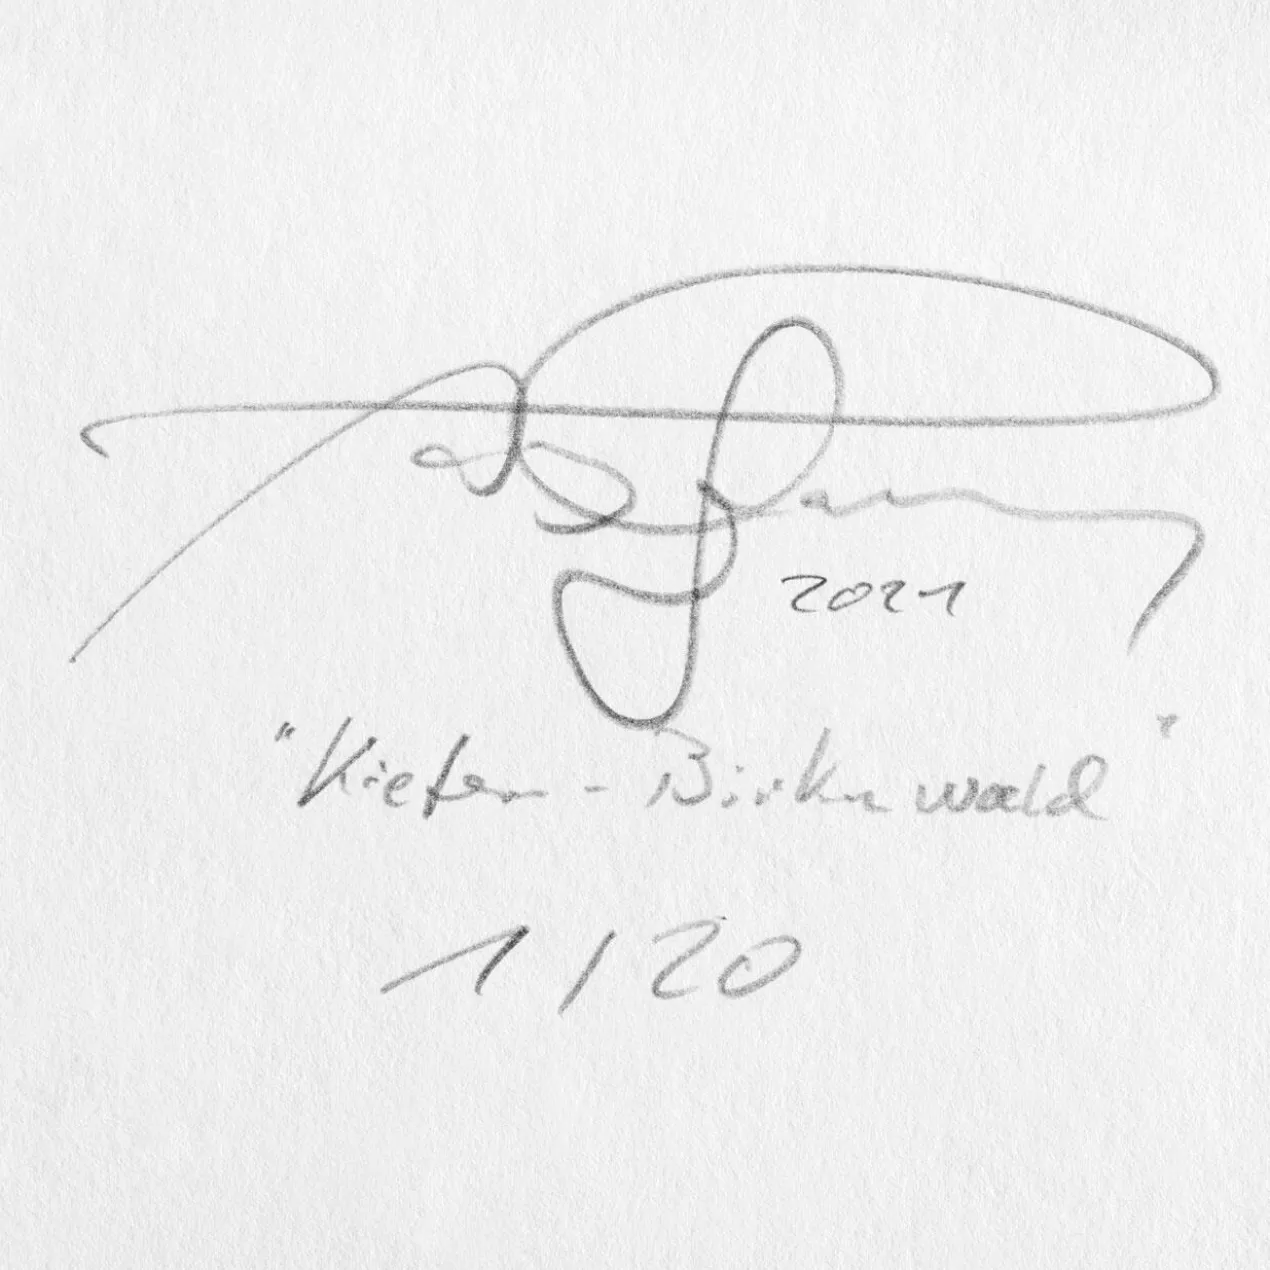 2021
"Kiefern-Birkenwald"
1/20